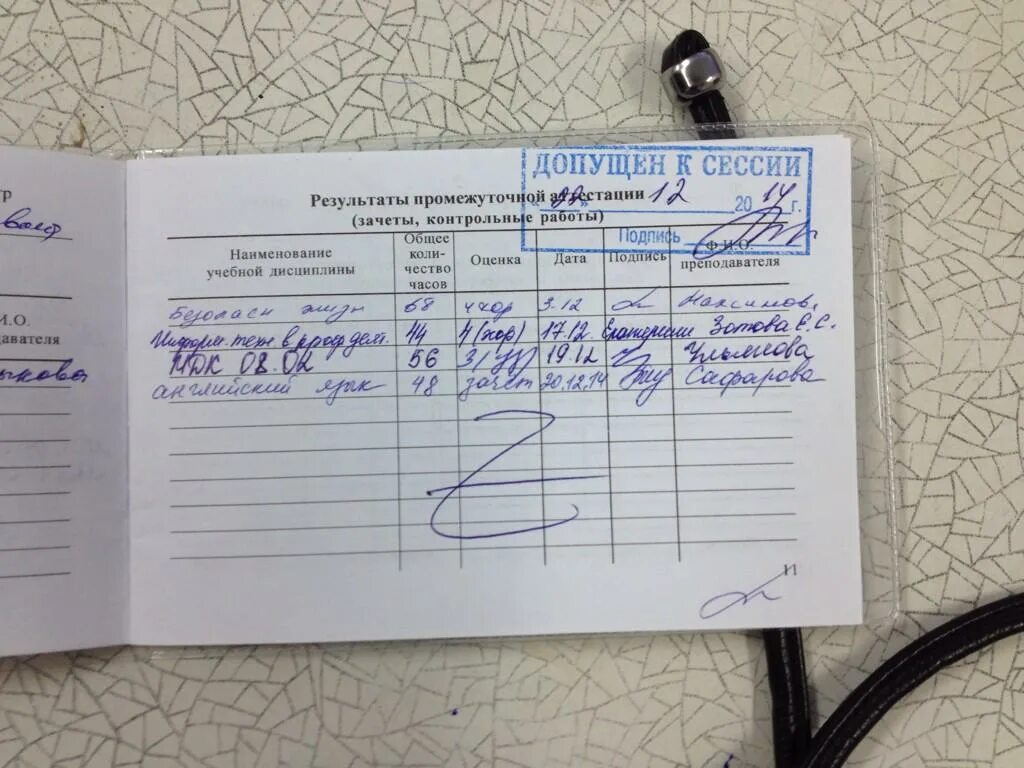 ДОПУЩЕН К СЕССИИ
Результаты промежуточной аттестации
«22» 12 2014 г.
(зачеты, контрольные работы)
Подпись
Наименование учебной дисциплины Общее коли-чество часов Оценка Дата Подпись Ф.И.О. преподавателя
Безопасн жизн 68 4 хор 3.12 Максимов.
Информ. техн в проф деят. 44 4 (хор) 17.12. Зотова Е.С.
МДК 08.02 56 3 (уд) 19.12 Ульянова
английский язык 48 зачет 20.12.14 Сафарова
11